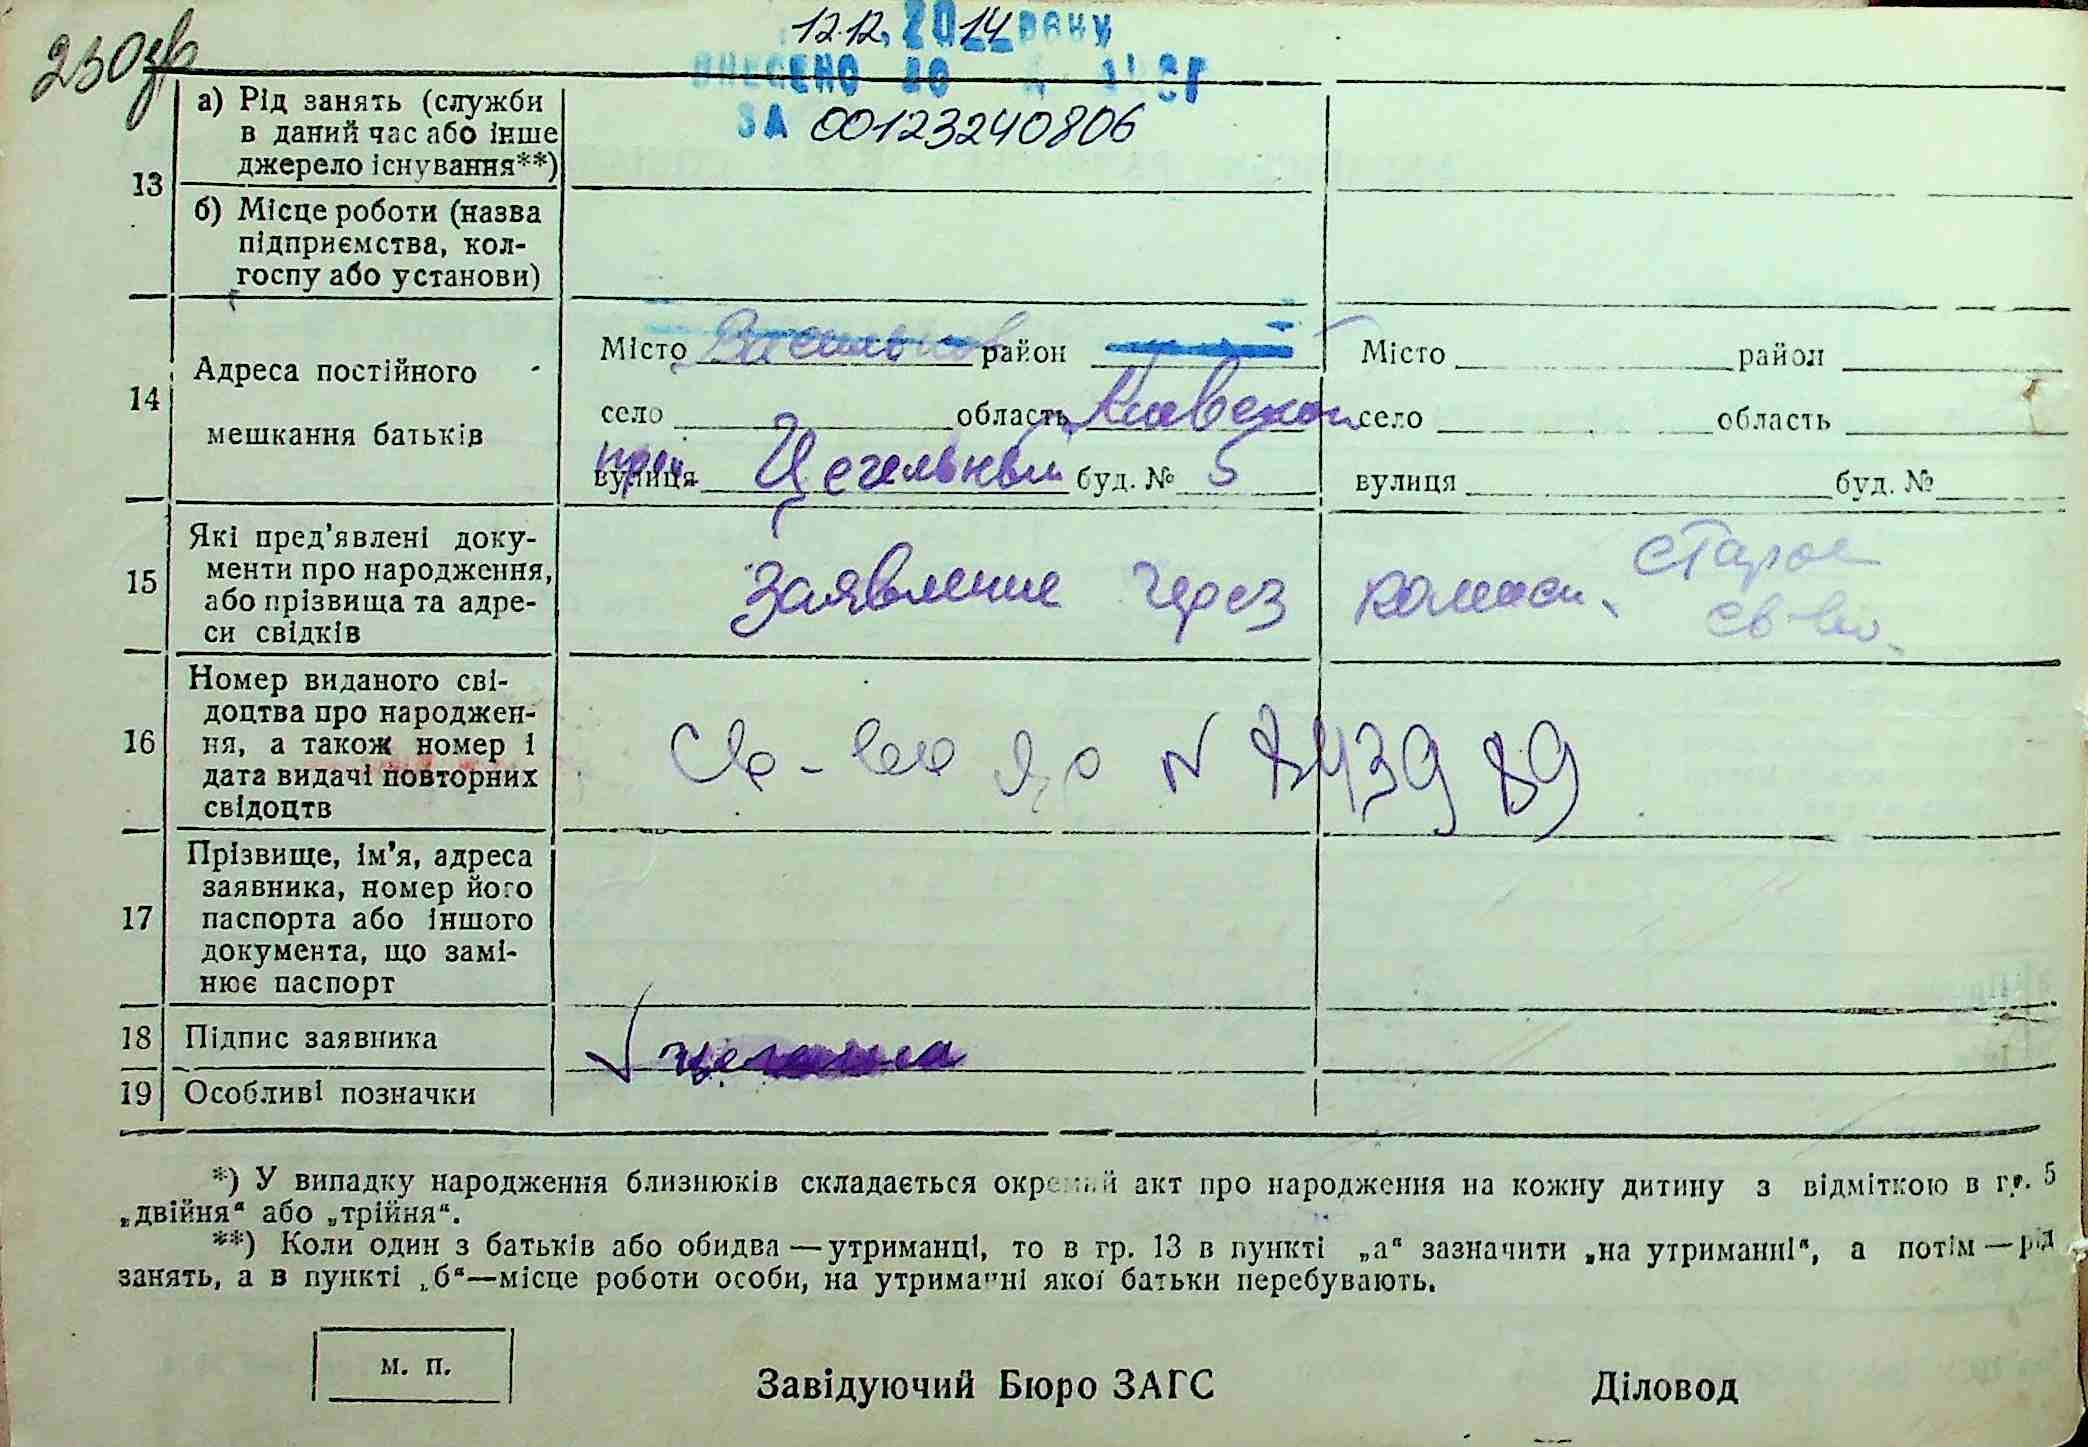 230зв
12.12.2014 року
ВНЕСЕНО ДО
ЗА 00123240806
13
а) Рід занять (служби
в даний час або інше
джерело існування**)
б) Місце роботи (назва
підприємства, кол-
госпу або установи)
14
Адреса постійного
мешкання батьків
Місто Васильков район
село область Киевской
вулиця Цегельный буд. № 5
Місто район
село область
вулиця буд. №
15
Які пред'явлені доку-
менти про народження,
або прізвища та адре-
си свідків
Заявление через комисс. старое
св-во
16
Номер виданого сві-
доцтва про народжен-
ня, а також номер і
дата видачі повторних
свідоцтв
Св-во № 843989
17
Прізвище, ім'я, адреса
заявника, номер його
паспорта або іншого
документа, що замі-
нює паспорт
18 Підпис заявника
19 Особливі позначки
*) У випадку народження близнюків складається окремий акт про народження на кожну дитину з відміткою в гр. 5
„двійня“ або „трійня“.
**) Коли один з батьків або обидва — утриманці, то в гр. 13 в пункті „а“ зазначити „на утриманні“, а потім — рід
занять, а в пункті „б“—місце роботи особи, на утриманні якої батьки перебувають.
м. п.
Завідуючий Бюро ЗАГС
Діловод